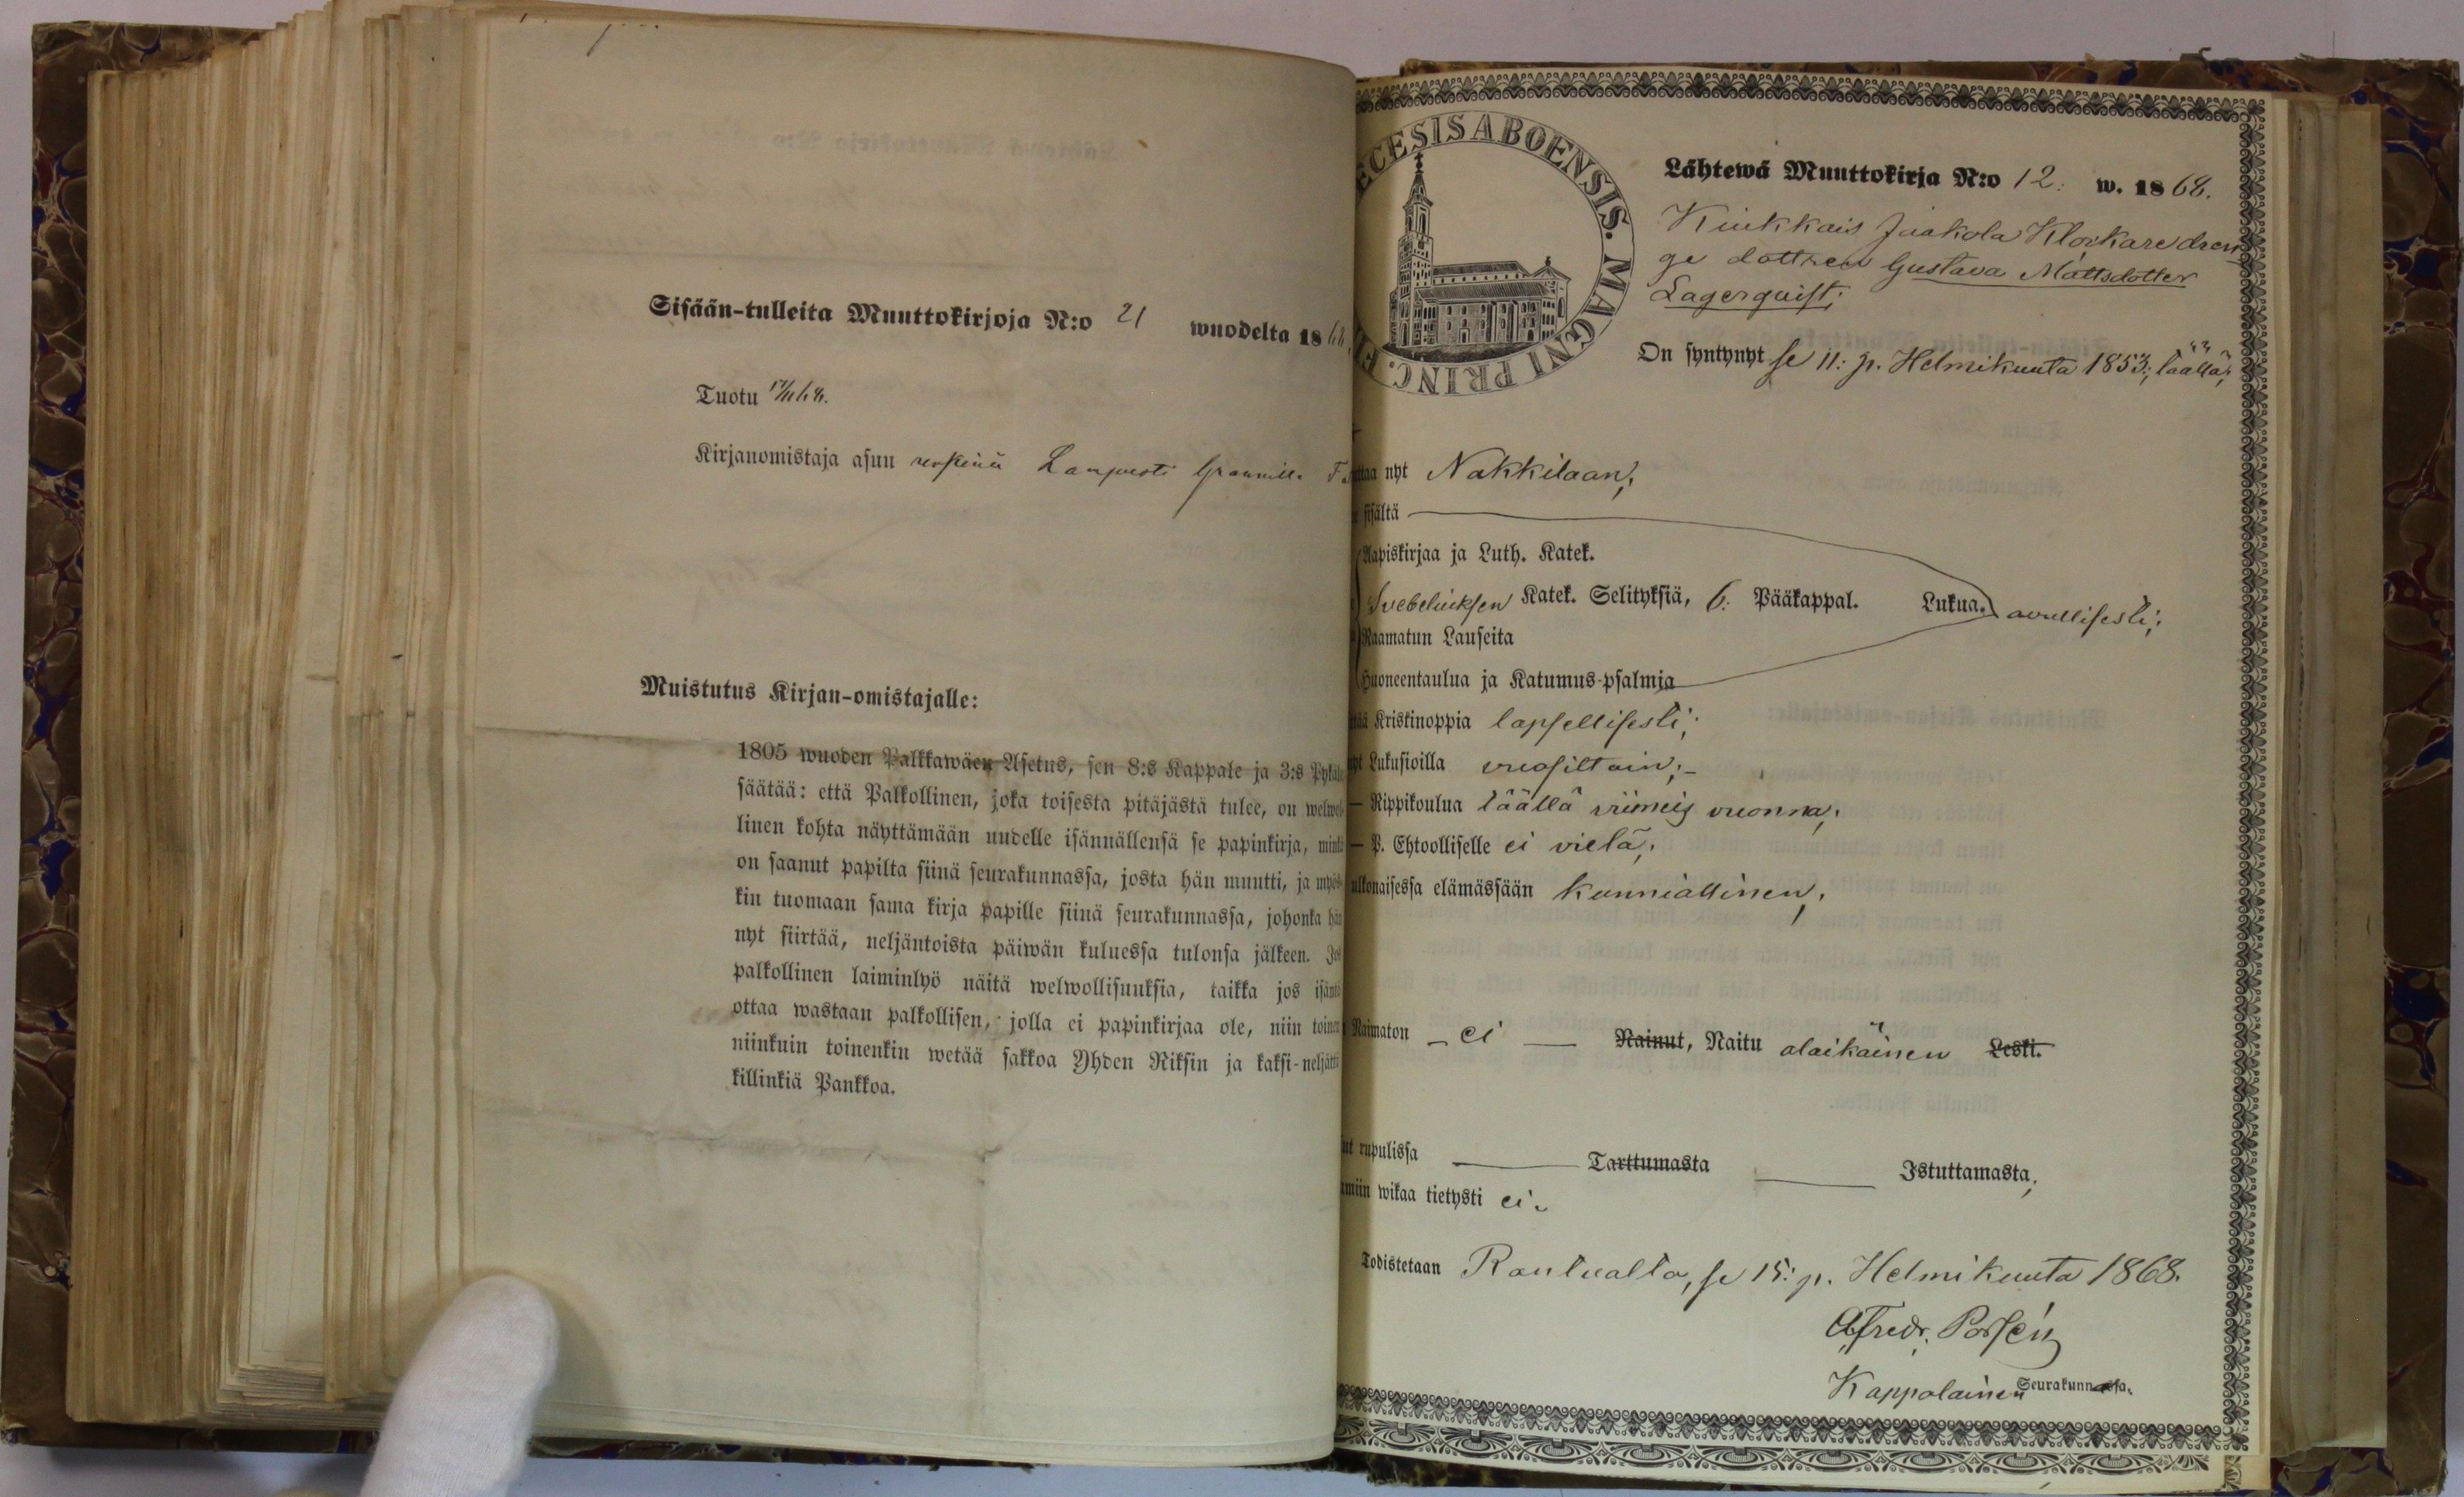 Sisään-tulleita Muuttokirjoja N:o 21 wuodelta 1868
Tuotu
Kirjanomistaja asuu
Muistutus Kirjan-omistajalle:
1805 wuoden Palkkawäen-Asetus, sen 8:s Kappale ja 3:s Pykälä
säätää: että Palkollinen, joka toisesta pitäjästä tulee, on welwol
linen kohta näyttämään uudelle isännällensä se papinkirja, minkä
on saanut papilta siinä seurakunnassa, josta hän muutti, ja myös
kin tuomaan sama kirja papille siinä seurakunnassa, johonka hän
nyt siirtää, neljäntoista päiwän kuluessa tulonsa jälkeen. Jos
palkollinen laiminlyö näitä welwollisuuksia, taikka jos isäntä
ottaa wastaan palkollisen, jolla ei papinkirjaa ole, niin toinen
niinkuin toinenkin wetää sakkoa Yhden Riksin ja kaksi-neljättä
killinkiä Pankkoa.
ECESIS ABOENSIS. MAGNI PRINC. F
Lähtewä Muuttokirja N:o 12. w. 1868.
Kiukkais Jaakola Klockare dren
ge dottren Gustava Mattsdotter
Lagerquist;
On syntynyt se 11: p. Helmikuuta 1853; täällä;
ttaa nyt Nakkilaan;
sisältä
Aapiskirjaa ja Luth. Katek.
Svebeliuksen Katek. Selityksiä, 6: Pääkappal. Lukua. avullisesti;
Raamatun Lauseita
Huoneentaulua ja Katumus-psalmia
tää Kriskinoppia lapsellisesti;
yt Lukusioilla vuosiltain;
— Rippikoulua täällä viimeis vuonna;
— P. Ehtoolliselle ei vielä;
ulkonaisessa elämässään kunniallinen;
Naimaton — ei — Nainut, Naitu alaikäinen Leski.
ut rupulissa — Tarttumasta — Istuttamasta;
umiin wikaa tietysti ei.
Todistetaan Rantualla, se 15: p. Helmikuuta 1868.
Kappalainen Seurakunnassa.